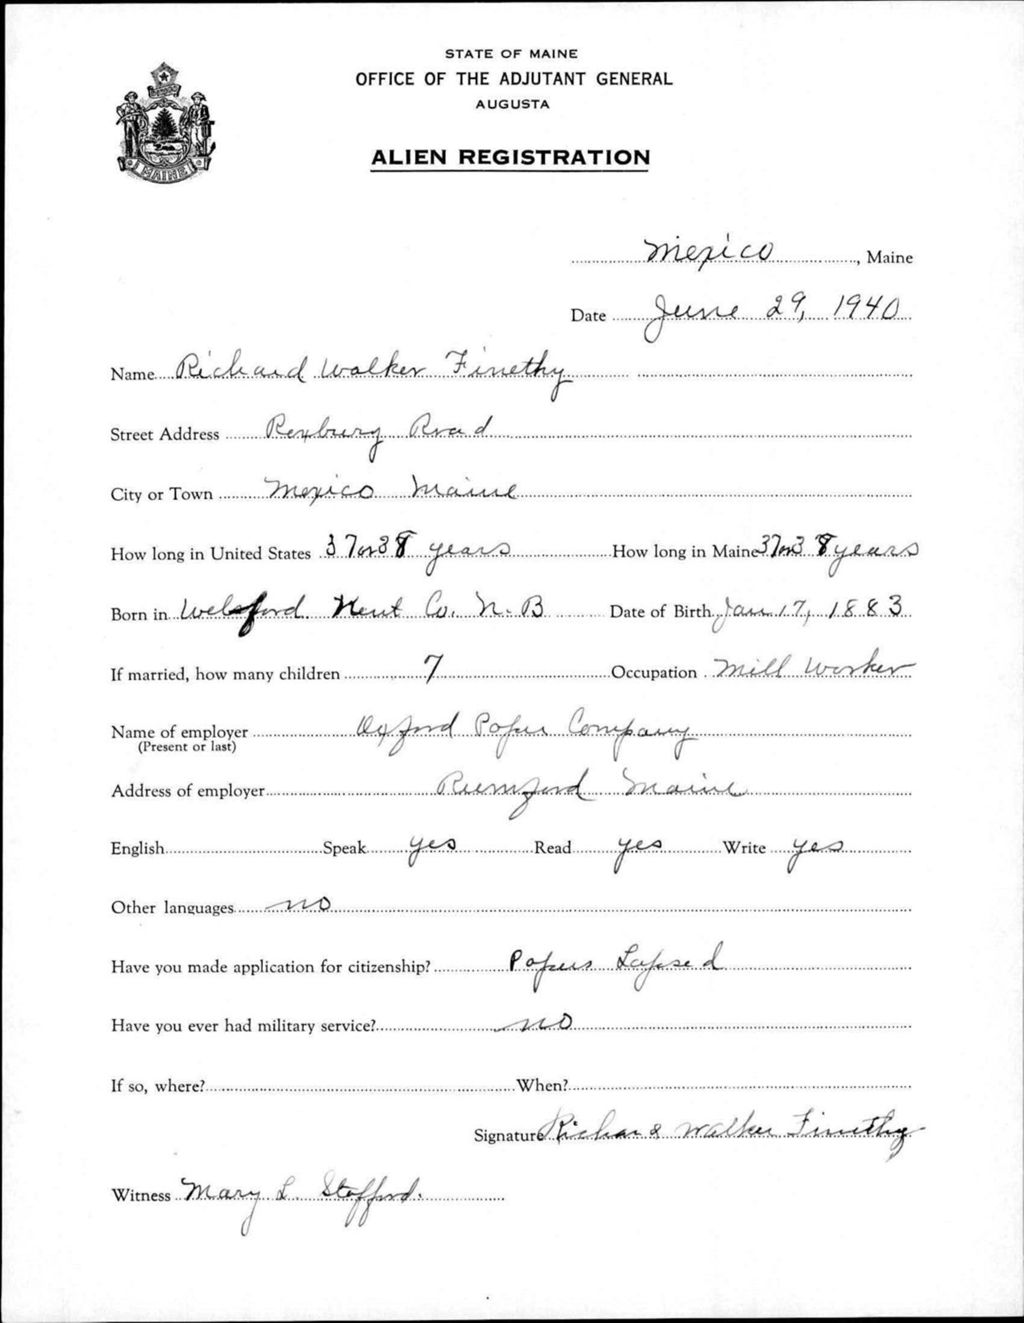 STATE OF MAINE
OFFICE OF THE ADJUTANT GENERAL
AUGUSTA
ALIEN REGISTRATION
MAINE
Mexico, Maine
Date June 29, 1940
Name Richard Walker Finethy
Street Address Roxburg Road
City or Town Mexico Maine
How long in United States 37 or 38 years How long in Maine 37 or 38 years
Born in Welsford Kent Co. N.B Date of Birth Jan 17, 1883
If married, how many children 7 Occupation Mill Worker
Name of employer Oxford Paper Company
(Present or last)
Address of employer Rumford Maine
English Speak yes Read yes Write yes
Other languages no
Have you made application for citizenship? Papers Lapsed
Have you ever had military service? no
If so, where? When?
Signature Richard Walker Finethy
Witness Mary L. Stafford.